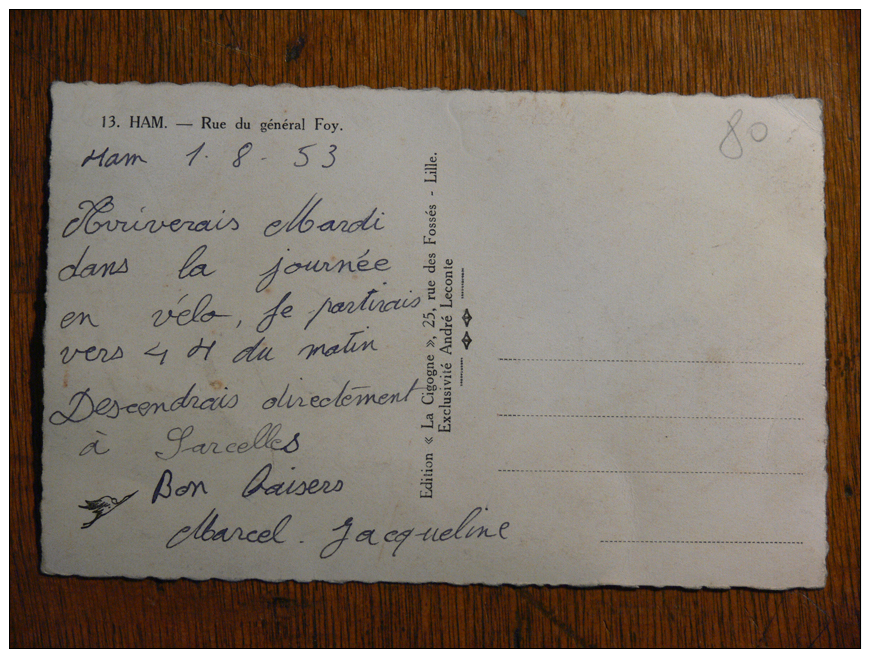 13. HAM. — Rue du général Foy.
Ham 1. 8. 53
Arriverais Mardi
dans la journée
en vélo, Je partirais
vers 4 H du matin
Descendrais directement
à Sarcelles
Bon baisers
Marcel. Jacqueline
Edition « La Cigogne », 25, rue des Fossés - Lille.
Exclusivité André Leconte
80